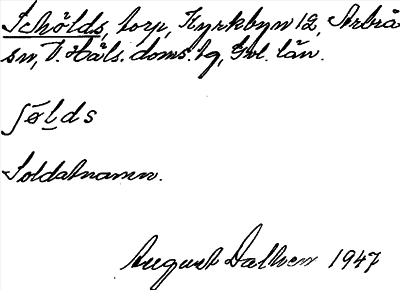 Schölds, torp, Kyrkbyn 12, Arbrå
sn, V. Häls. doms. tg, Gvl. län.
ʃøl̲ds
Soldatnamn.
August Dalhem 1947